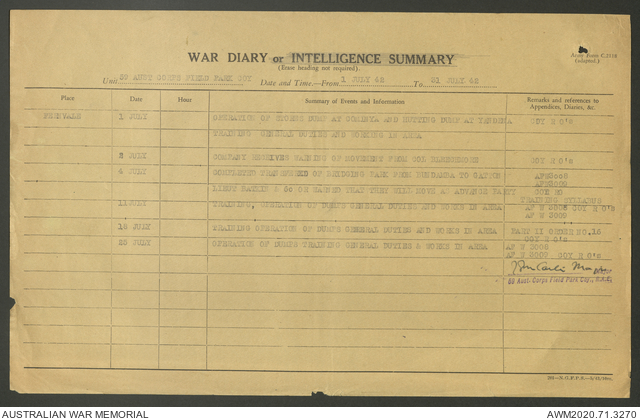 WAR DIARY or INTELLIGENCE SUMMARY
(Erase heading not required).
Army Form C.2118
(adapted.)
Unit AUST CORPS FIELD PARK COY Date and Time.—From 1 JULY 42 To 31 JULY 42
Place Date Hour Summary of Events and Information Remarks and references to Appendices, Diaries, &c
1 JULY OPERATION OF STORES DUMP AT AND HUTTING DUMP AT COY R O'S
TRAINING GENERAL DUTIES AND WORKING IN AREA
2 JULY COMPANY RECEIVES WARNING OF MOVEMENT FROM COY R O'S
4 JULY COMPLETED OF BRIDGING PARK FROM BUNDAMBA TO GATTON
AFW3009
WARNED THAT THEY WILL MOVE AS ADVANCE PARTY COY RO
TRAINING SYLLABUS
11 JULY TRAINING, OPERATION OF DUMPS GENERAL DUTIES AND WORKS IN AREA AF W 3008 COY R O'S
AF W 3009
18 JULY TRAINING OPERATION OF DUMPS GENERAL DUTIES AND WORKS IN AREA PART II ORDER NO.
COY R O'S
25 JULY OPERATION OF DUMPS TRAINING GENERAL DUTIES & WORKS IN AREA AF W 3008
AF W COY R O'S
Aust. Corps Field Park Coy., R.A.E.
AUSTRALIAN WAR MEMORIAL AWM2020.71.3270